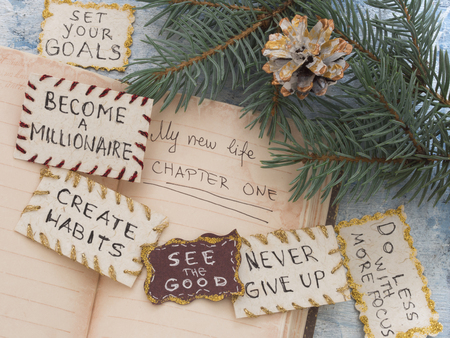 SET
YOUR
GOALS
BECOME
A
MILLIONAIRE
My new life
CHAPTER ONE
CREATE
HABITS
SEE
THE
GOOD
NEVER
GIVE UP
DO LESS
WITH
MORE FOCUS